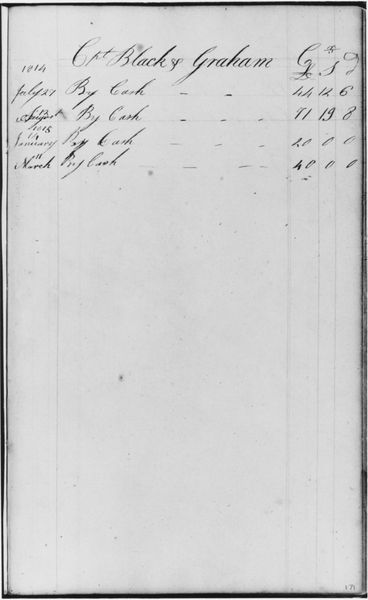 Cpt Black & Graham Cr
1814 £ S d
July 27 By Cash - - 44 12 6
August By Cash - - - 71 19 8
1815
January 14 By Cash - - - 20 0 0
March 11 By Cash - - - - 40 0 0
171